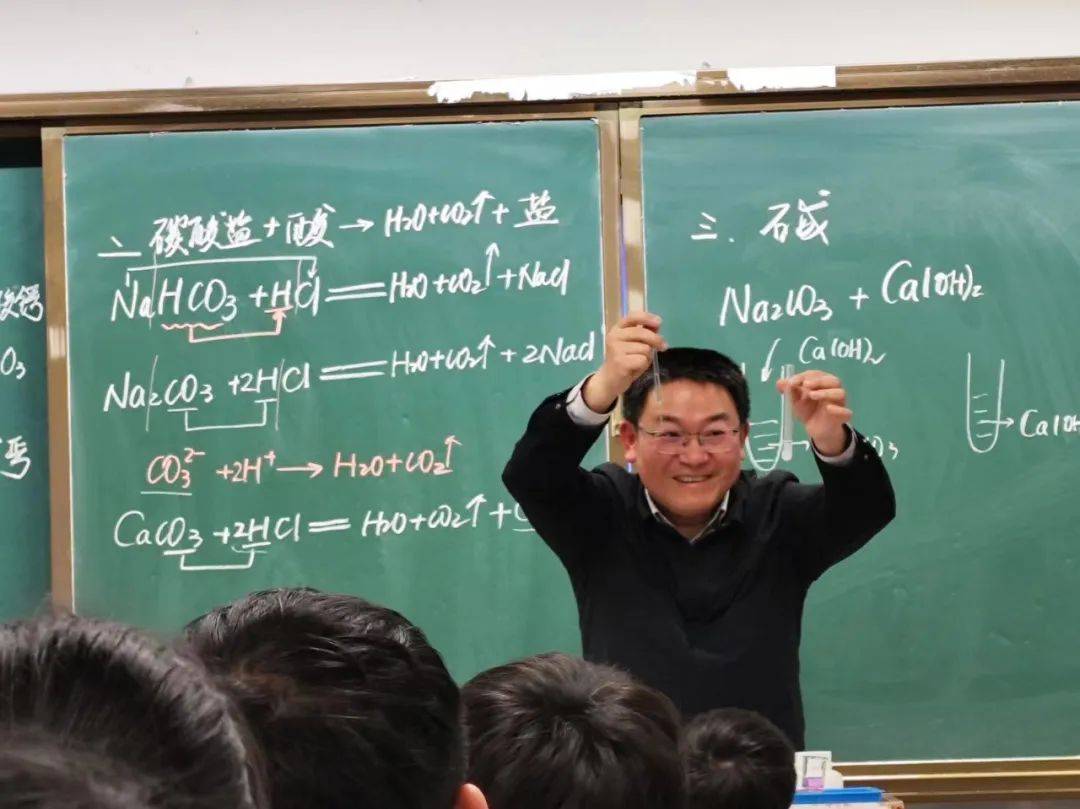 二、碳酸盐+酸→H₂O+CO₂↑+盐
NaHCO₃+HCl══H₂O+CO₂↑+NaCl
Na₂CO₃+2HCl══H₂O+CO₂↑+2NaCl
CO₃²⁻+2H⁺→H₂O+CO₂↑
CaCO₃+2HCl══H₂O+CO₂↑+
三、碱
Na₂CO₃+Ca(OH)₂
Ca(OH)₂
O₃
Ca(OH
O₃